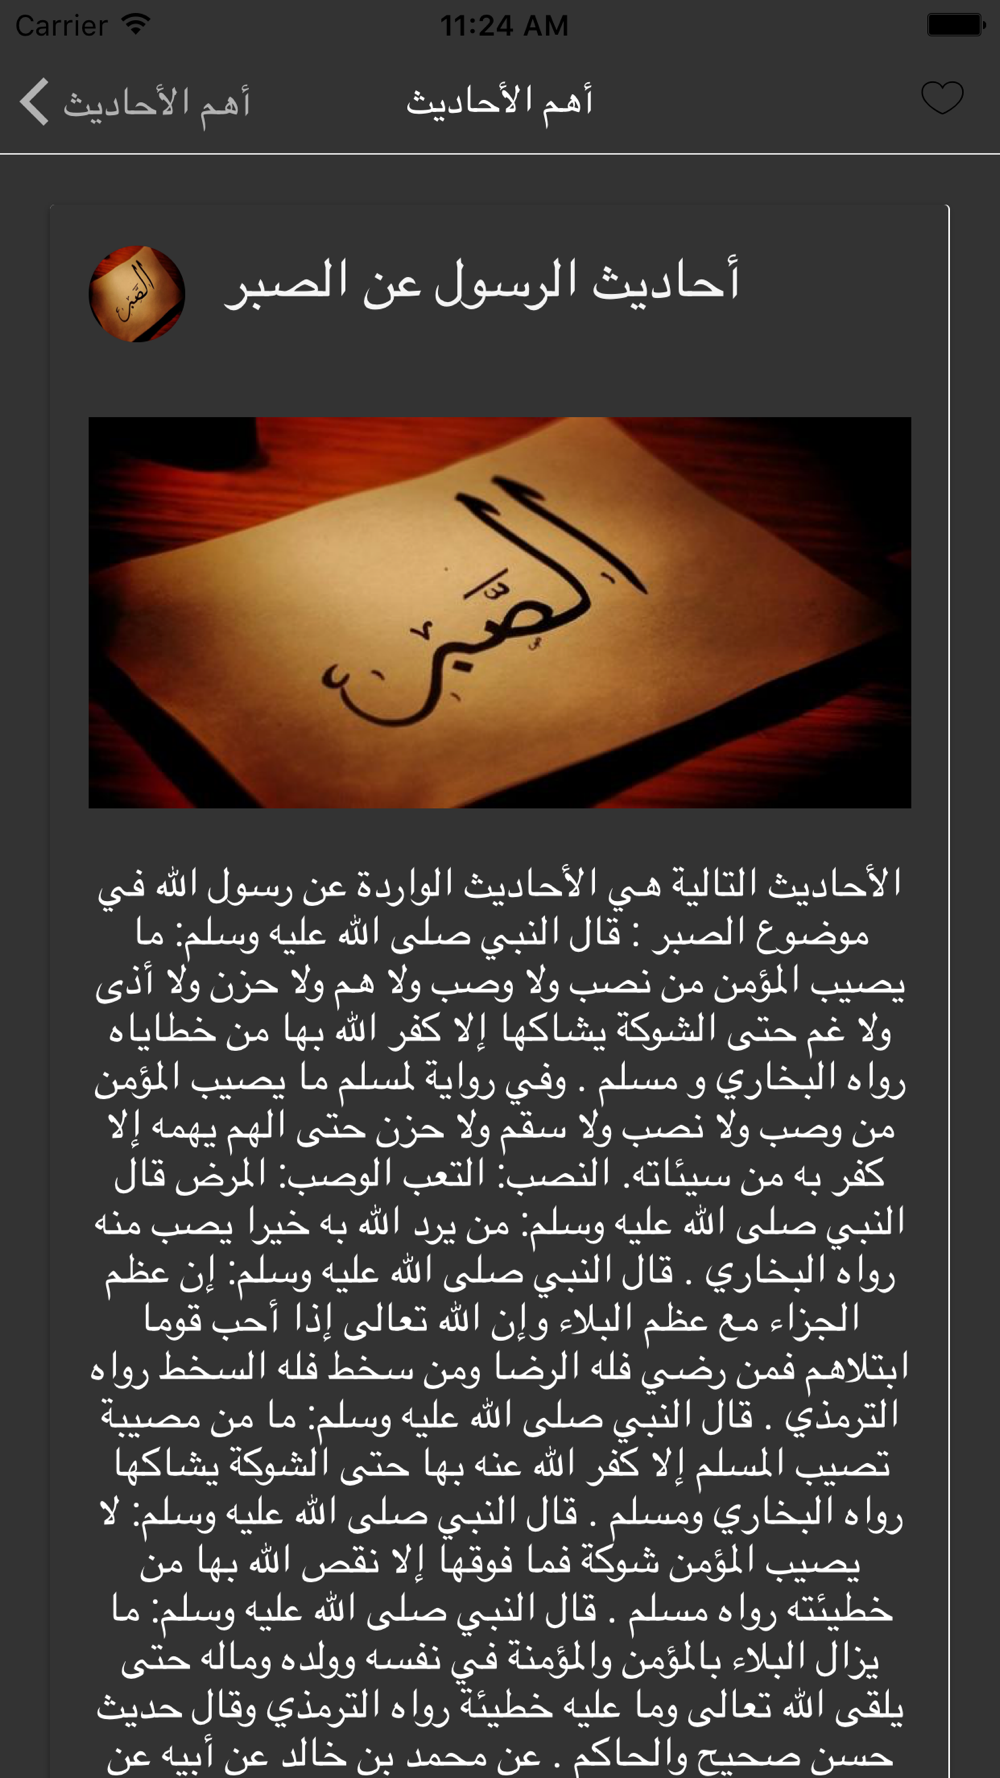 Carrier
11:24 AM
أهم الأحاديث
أهم الأحاديث
أحاديث الرسول عن الصبر
الصَّبْرُ
الصَّبْرُ
الأحاديث التالية هي الأحاديث الواردة عن رسول الله في
موضوع الصبر : قال النبي صلى الله عليه وسلم: ما
يصيب المؤمن من نصب ولا وصب ولا هم ولا حزن ولا أذى
ولا غم حتى الشوكة يشاكها إلا كفر الله بها من خطاياه
رواه البخاري و مسلم . وفي رواية لمسلم ما يصيب المؤمن
من وصب ولا نصب ولا سقم ولا حزن حتى الهم يهمه إلا
كفر به من سيئاته. النصب: التعب الوصب: المرض قال
النبي صلى الله عليه وسلم: من يرد الله به خيرا يصب منه
رواه البخاري . قال النبي صلى الله عليه وسلم: إن عظم
الجزاء مع عظم البلاء وإن الله تعالى إذا أحب قوما
ابتلاهم فمن رضي فله الرضا ومن سخط فله السخط رواه
الترمذي . قال النبي صلى الله عليه وسلم: ما من مصيبة
تصيب المسلم إلا كفر الله عنه بها حتى الشوكة يشاكها
رواه البخاري ومسلم . قال النبي صلى الله عليه وسلم: لا
يصيب المؤمن شوكة فما فوقها إلا نقص الله بها من
خطيئته رواه مسلم . قال النبي صلى الله عليه وسلم: ما
يزال البلاء بالمؤمن والمؤمنة في نفسه وولده وماله حتى
يلقى الله تعالى وما عليه خطيئة رواه الترمذي وقال حديث
حسن صحيح والحاكم . عن محمد بن خالد عن أبيه عن